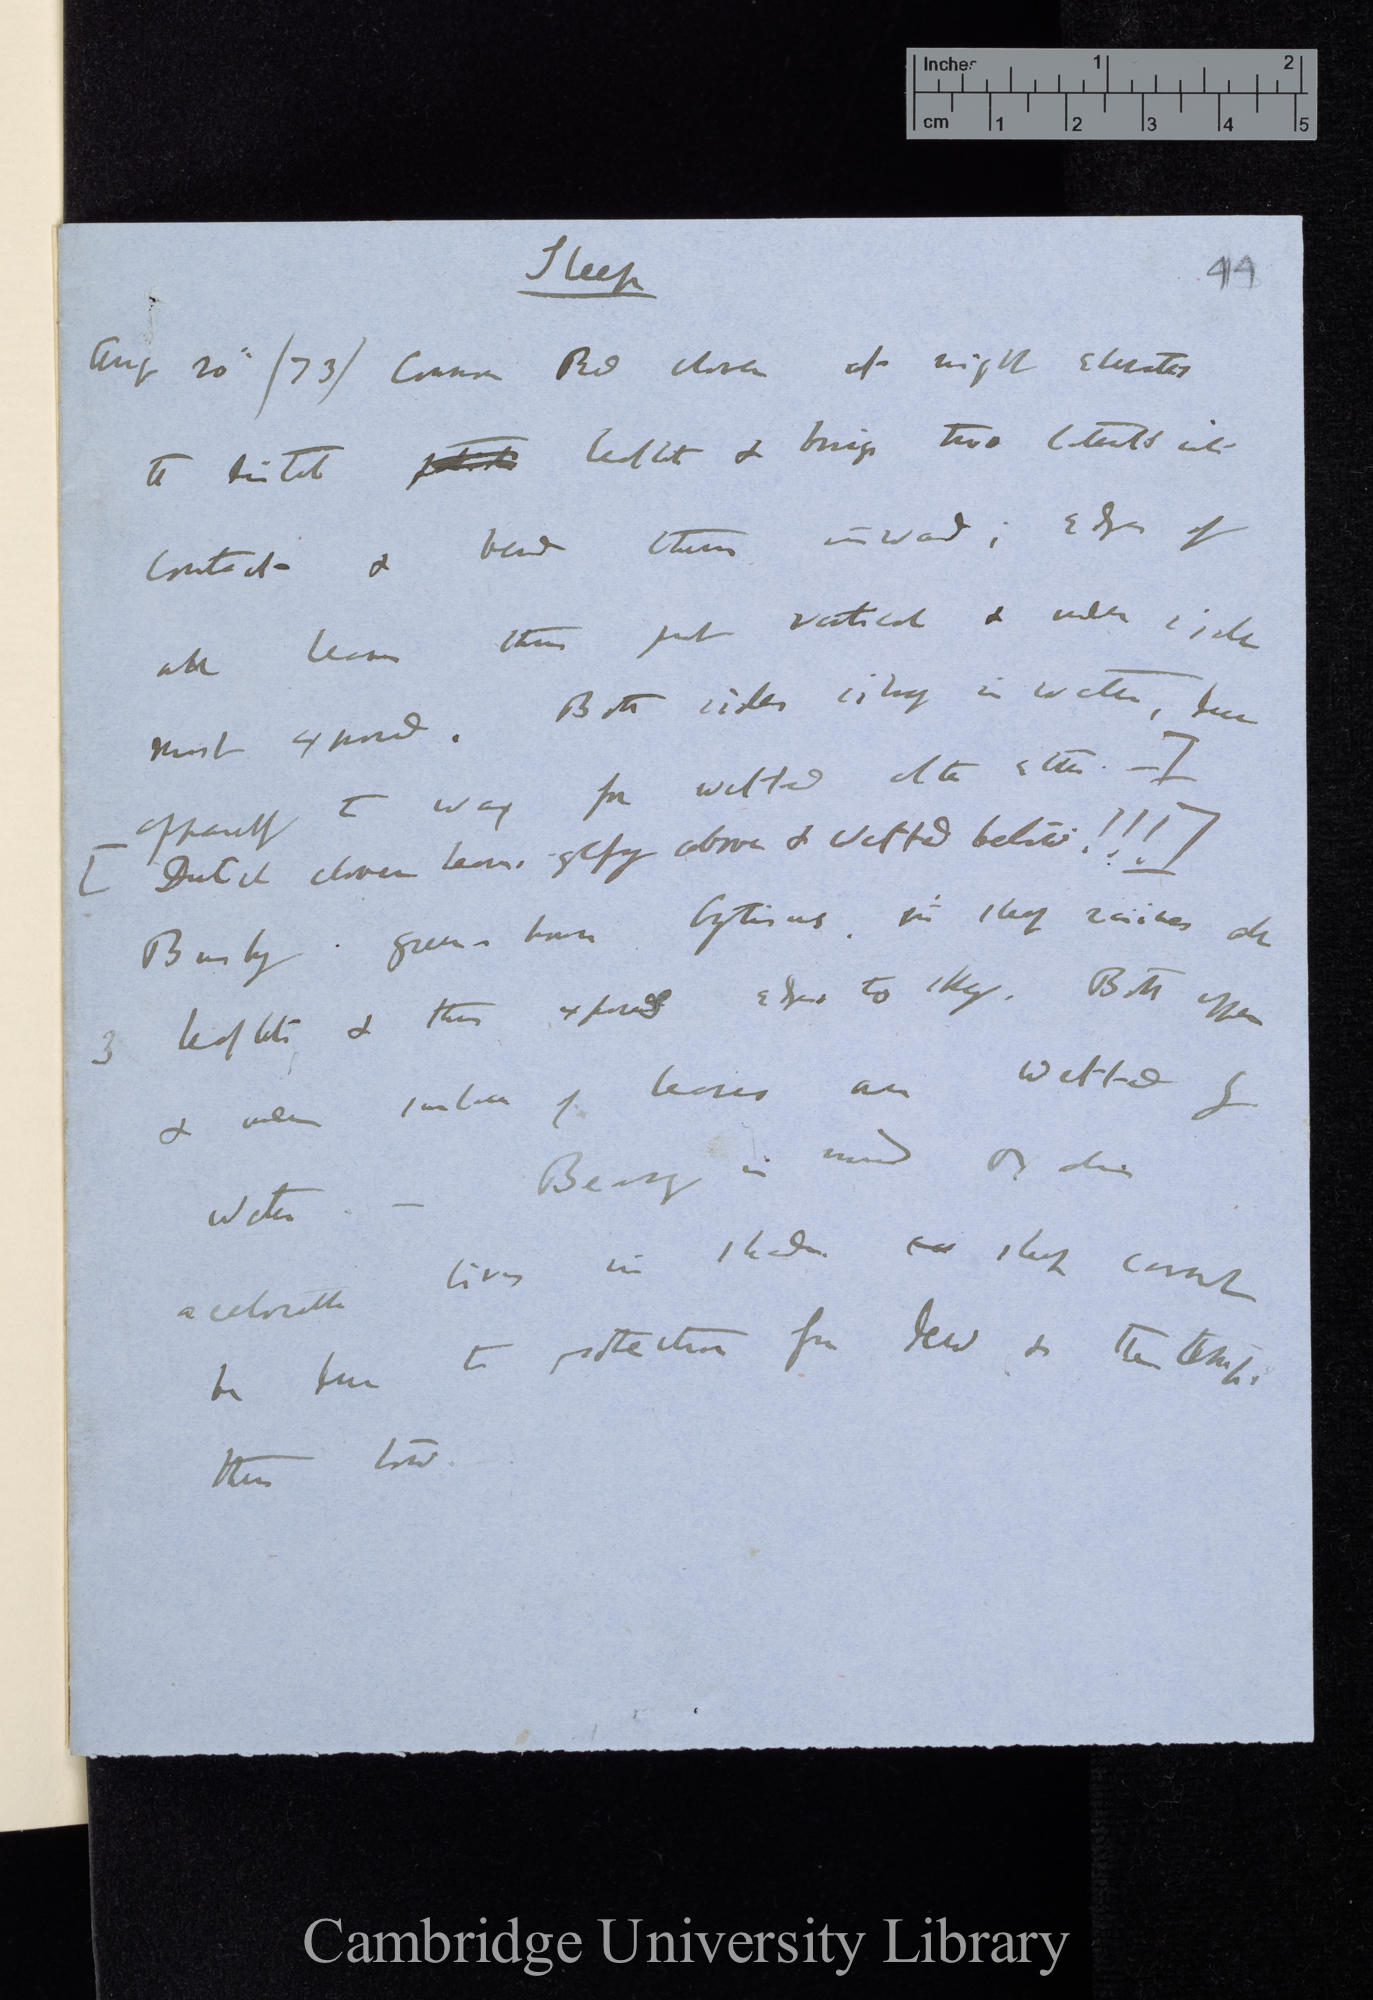 Inches 1 2
cm 1 2 3 4 5
Sleep
44
Aug 20th (73) Common Red clover at night elevates
the distal leaflet & brings two laterals into
contact & bend them inward; edges of
all leaves thus put vertical & under side
most exposed. Both sides silvery in water, due
apparently to wax for wetted after ether. —]
[ Dutch clover leaves glossy above & wetted below!!!]
Bushy green-house Cytisus. in sleep raises all
3 leaflets & thus exposes edges to sky. Both upper
& under surface of leaves are wetted by
water. — Bearing in mind Oxalis
acetosella lives in shade sleep cannot
be due to protection from dew & the temp.
then low.
Cambridge University Library